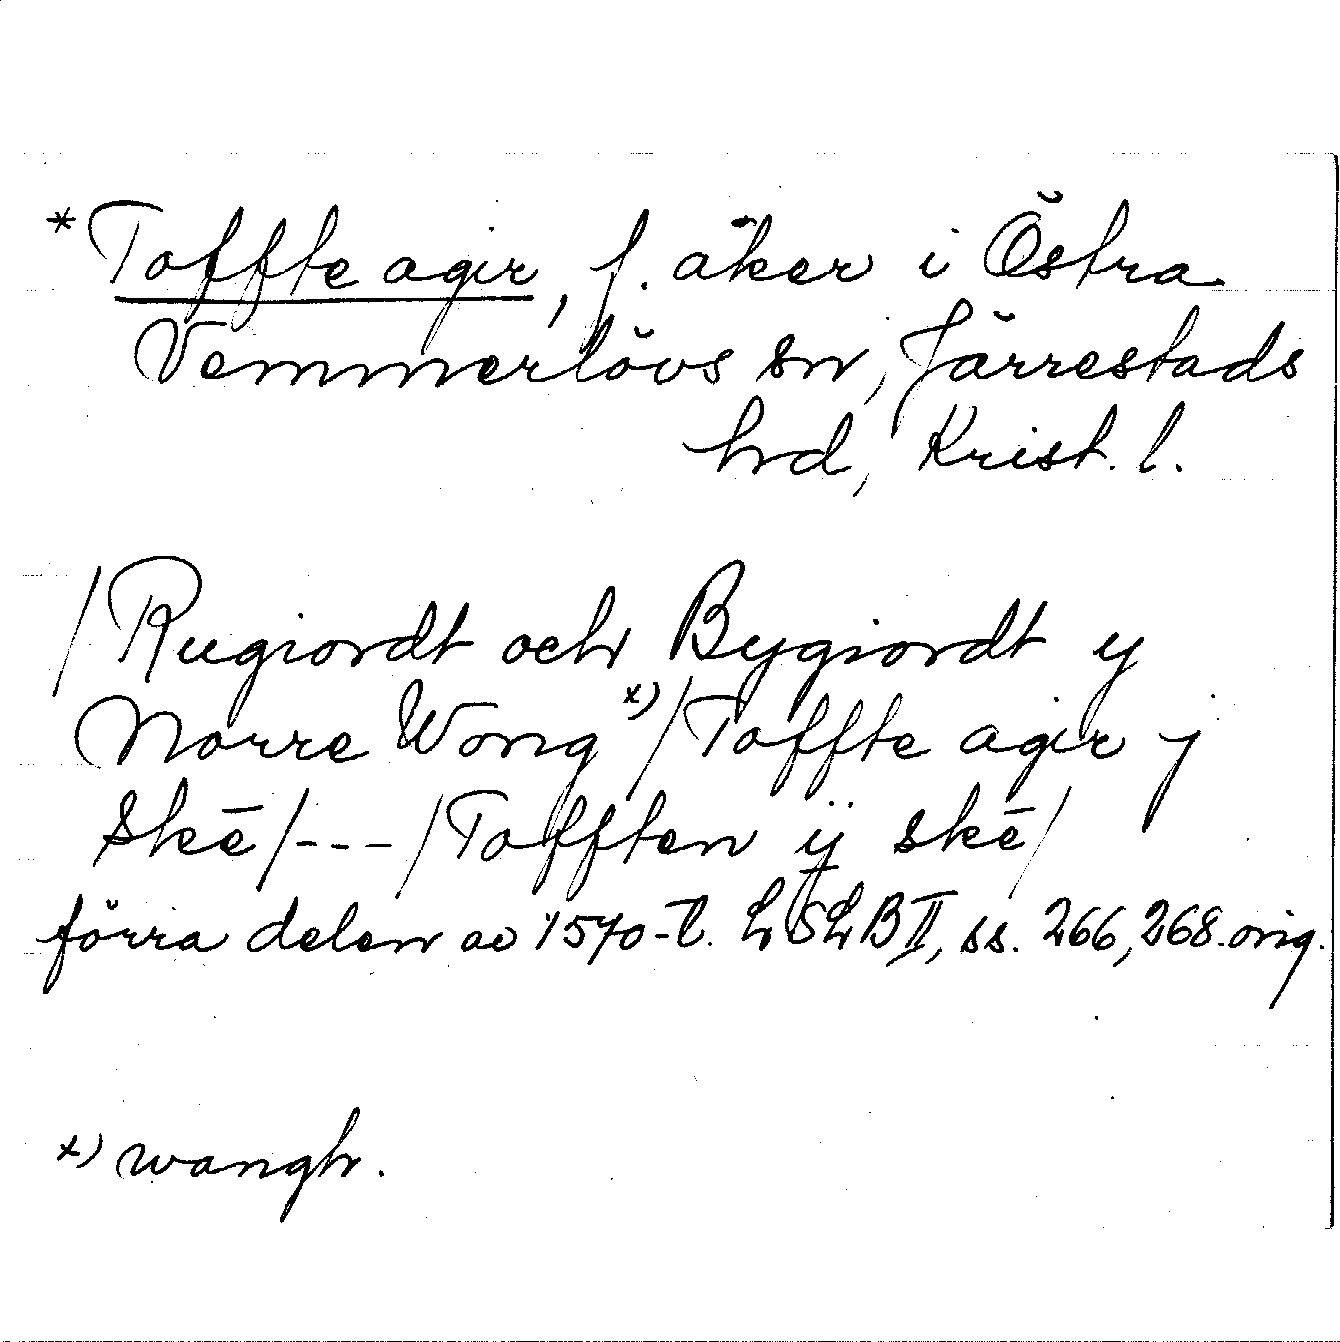 * Toffte agir, f. åker i Östra
Vemmerlövs sn, Järrestads
hrd, Krist. l.
/Rugiordt och Bygiordt y
Norre Wong *)/Toffte agir j
skē/---/Tofften ÿ skē/
förra delen av 1570-t. LSLB II, ss. 266, 268. orig.
*) wangh.